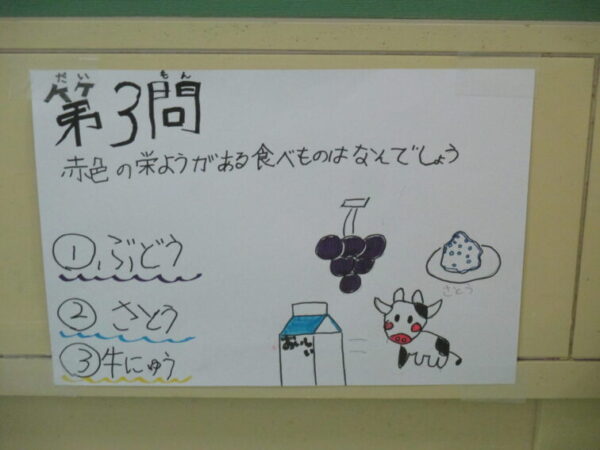 だい もん
第3問
赤色の栄ようがある食べものはなんでしょう
① ぶどう
② さとう
③ 牛にゅう
さとう
おいしい